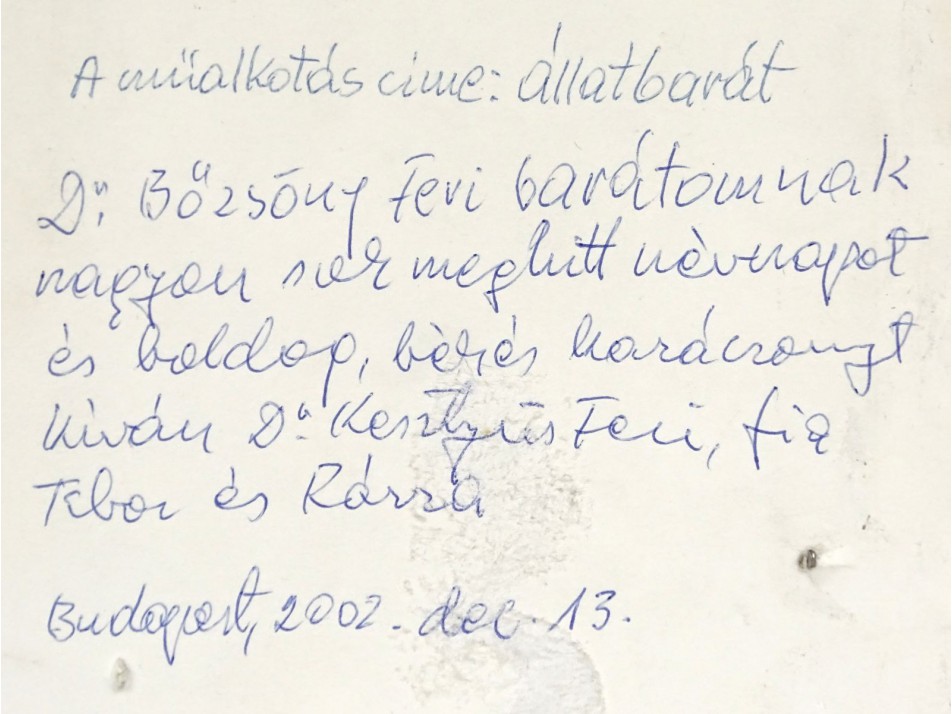 A műalkotás címe: állatbarát
Dr. Bőzsöny Feri barátomnak
nagyon sok meghitt névnapot
és boldog, békés karácsonyt
kíván Dr. Kesztyűs Feri, fia
Tibor és Rózsa
Budapest, 2002. dec. 13.